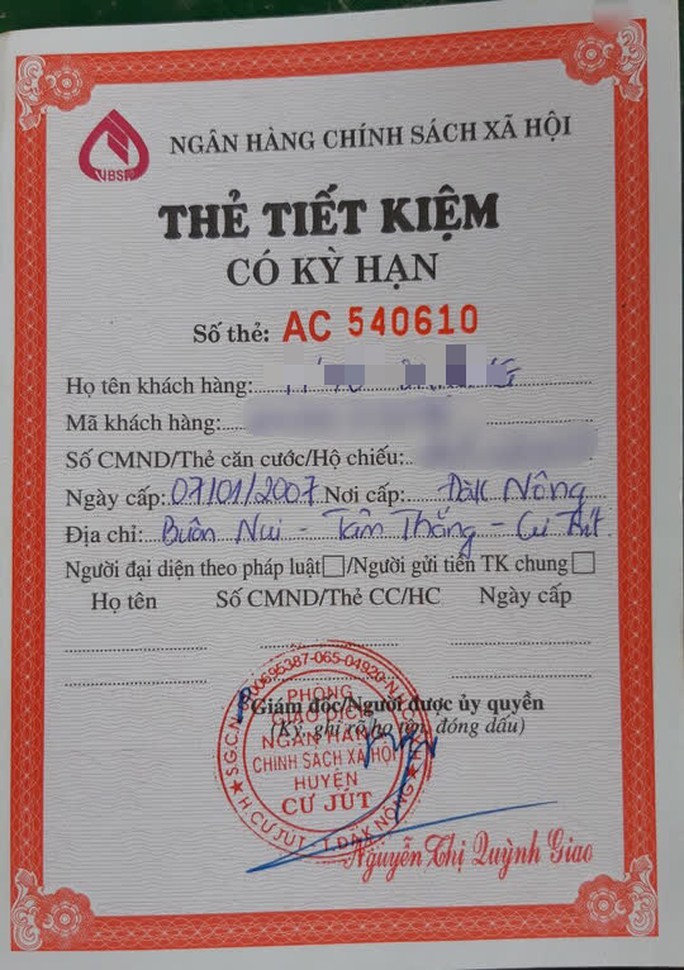 VBSP
NGÂN HÀNG CHÍNH SÁCH XÃ HỘI
THẺ TIẾT KIỆM
CÓ KỲ HẠN
Số thẻ: AC 540610
Họ tên khách hàng:
Mã khách hàng:
Số CMND/Thẻ căn cước/Hộ chiếu:
Ngày cấp: 07/01/2007 Nơi cấp: Đăk Nông
Địa chỉ: Buôn Nui - Tâm Thắng - Cư Jút
Người đại diện theo pháp luật□/Người gửi tiền TK chung□
Họ tên Số CMND/Thẻ CC/HC Ngày cấp
Giám đốc/Người được ủy quyền
(Ký, ghi rõ họ tên, đóng dấu)
PHÒNG
GIAO DỊCH
NGÂN HÀNG
CHÍNH SÁCH XÃ HỘI
HUYỆN
CƯ JÚT
H.CƯ JÚT - T.ĐĂK NÔNG
Nguyễn Thị Quỳnh Giao